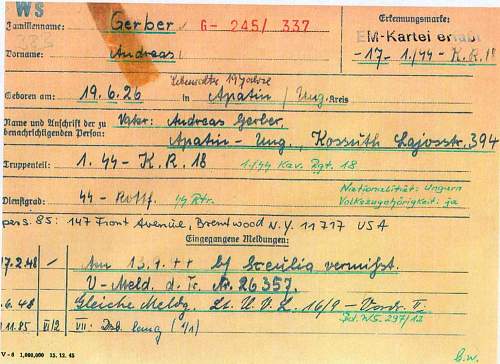 WS
Familienname: Gerber 6- 245/ 337
Erkennungsmarke:
EM-Kartei
-17- 1./44- K.R.18
Vorname: Andreas
Geboren am: 19.6.26 in Apatin / Ung. Kreis
Name und Anschrift der zu benachrichtigenden Person: Vater: Andreas Gerber,
Apatin - Ung., Kossuth Lajosstr. 394
Truppenteil: 1. 44- K.R. 18 1./44 Kav. Rgt. 18
Nationalität: Ungarn
Volkszugehörigkeit: ja
Dienstgrad: 44- Rottf. 44 Rtr.
pers. 85: 147 Front Avenue, Brentwood N.Y. 11717 USA
Eingegangene Meldungen:
7.2.48 / Am 13.9.44 bei vermißt.
V-Meld. d. Tr. Nr. 26357.
6.48 Gleiche Meldg. Lt. U.V.L. 16/9 - Vordr. II.
11.85 II/2 VII:
V-6 1,000,000 15.12.45